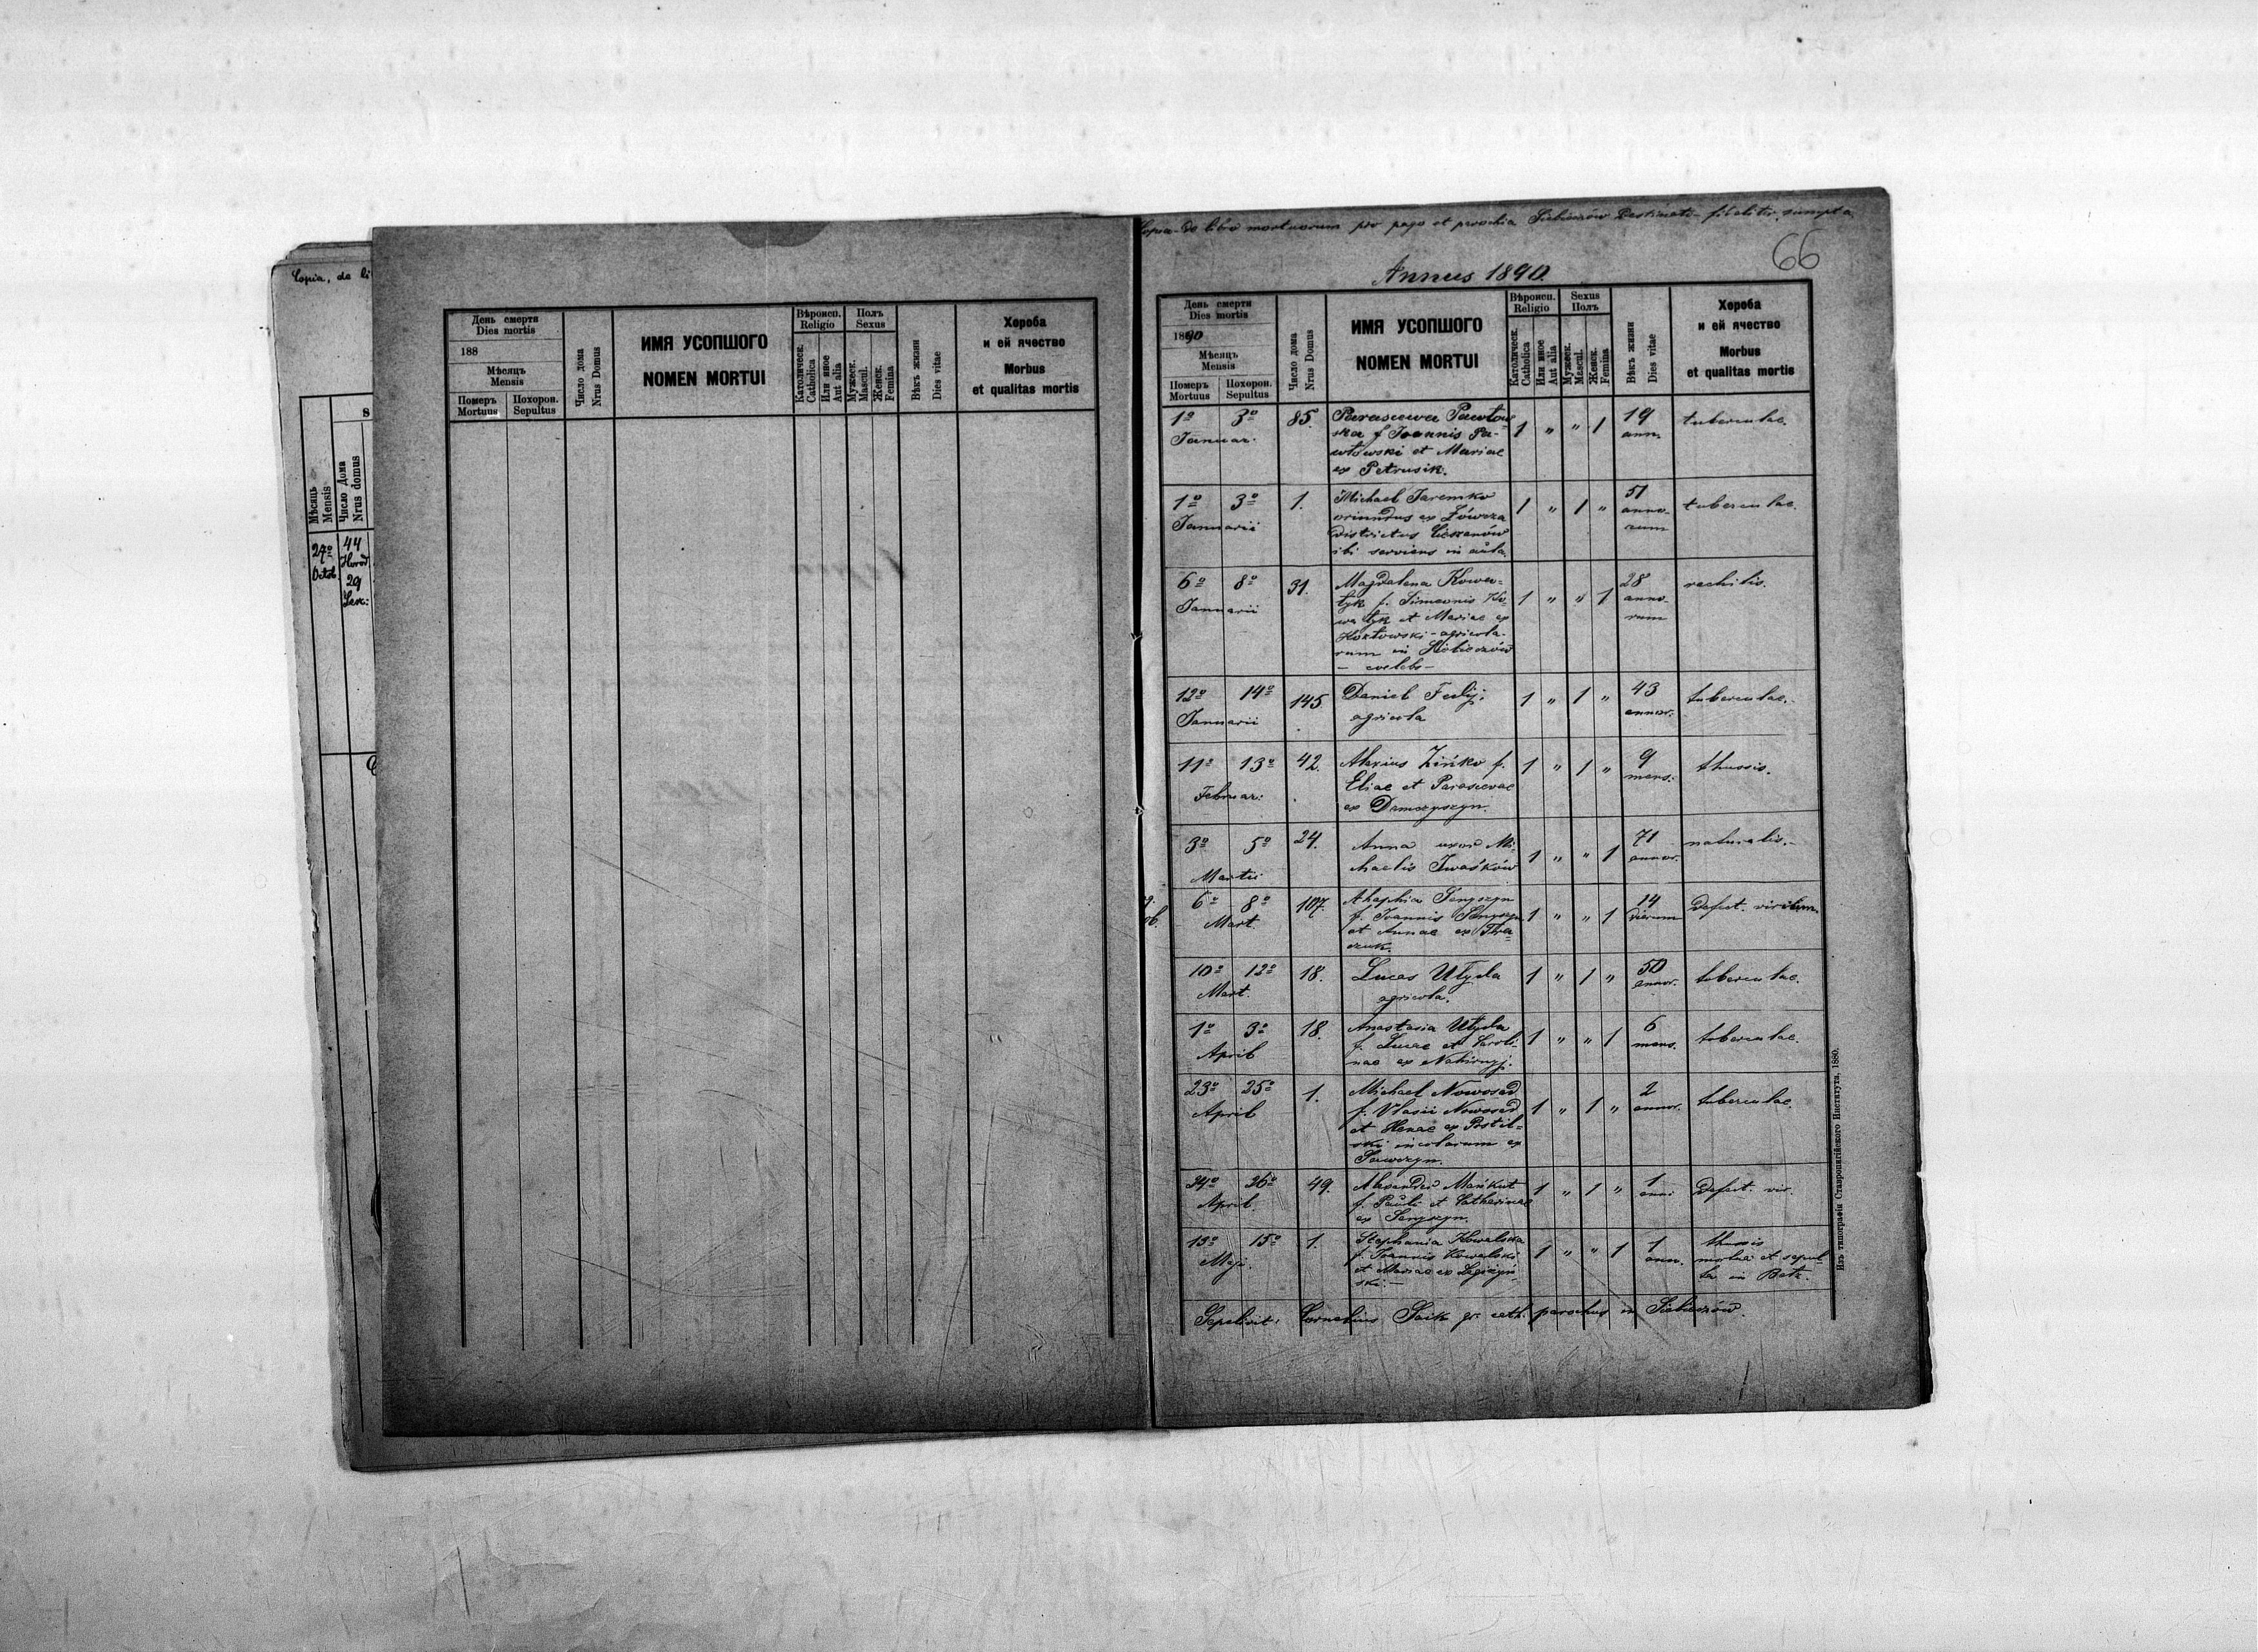 Copia, de li
S
Мѣсяць
Mensis
Число Дома
Nrus domus
27º
Octob.
44
Horod.
29
Lesz:
День смерти
Dies mortis
188
Мѣсяцъ
Mensis
Померъ
Mortuus
Похорон.
Sepultus
Число дома
Nrus Domus
ИМЯ УСОПШОГО
NOMEN MORTUI
Вѣроисп.
Religio
Католическ.
Catholica
Или иное
Aut alia
Полъ
Sexus
Мужеск.
Mascul.
Женск.
Femina
Вѣкъ жизни
Dies vitae
Хороба
и ей ячество
Morbus
et qualitas mortis
Copia de libro mortuorum pro pago et parochia Siebieczów Destinato fideliter sumpta
66
Annus 1890.
День смерти
Dies mortis
1890
Мѣсяцъ
Mensis
Померъ
Mortuus
Похорон.
Sepultus
Число дома
Nrus Domus
ИМЯ УСОПШОГО
NOMEN MORTUI
Вѣроисп.
Religio
Католическ.
Catholica
Или иное
Aut alia
Sexus
Полъ
Мужеск.
Mascul.
Женск.
Femina
Вѣкъ жизни
Dies vitae
Хороба
и ей ячество
Morbus
et qualitas mortis
1º 3º 85. Parasceva Pawłow- 1 " " 1 19 tuberculae.
Januar. ska f. Joannis Pa- ann.
włowski et Mariae
ex Petrusik.
1º 3º 1. Michael Jaremko 1 " 1 " 51 tuberculae.
Januarii oriundus ex Żówcza anno-
districtus Cieszanów rum
ibi serviens in aula
6º 8º 31. Magdalena Kowa- 1 " " 1 28 rachitis.
Januarii łyk f. Simeonis Ko- anno-
wałyk et Mariae ex rum
Kozłowski - agricola-
rum in Siebieczów
- coelebs -
12º 14º 145. Daniel Fedyj. 1 " 1 " 43 tuberculae.
Januarii agricola annor.
11º 13º 42. Alexius Zińko f. 1 " 1 " 9 thussis.
Februar: Eliae et Parascevae mens.
ex Damczyszyn.
3º 5º 24. Anna uxor Mi- 1 " " 1 71 naturalis.
Martii chaelis Iwaśków annor.
6º 8º 107. Ahaphia Senyszyn 1 " " 1 14 Defect. virium.
Mart. f. Joannis Senyszyn dierum
et Annae ex
10º 12º 18. Lucas Ułyda 1 " 1 " 50 tuberculae.
Mart. agricola. annor.
1º 3º 18. Anastasia Ułyda 1 " " 1 6 tuberculae.
April f. Lucae et Caroli- mens.
nae ex Nahirnyj.
23º 25º 1. Michael Nowosad 1 " 1 " 2 tuberculae.
April f. Vlasii Nowosad annor.
et Helenae ex Postil-
ski incolarum ex
Sawczyn.
24º 26º 49. Alexander Mańkut 1 " 1 " 1 Defect. vir.
April. f. Pauli et Catharinae anni
ex Senyszyn.
13º 15º 1. Stephania Kowalska 1 " " 1 1 thussis
Maji. f. Joannis Kowalski ann. mortua et sepul-
et Mariae ex ta in Bełz.
ski. -
Sepelivit: Cornelius Saik gr. cath. parochus in Siebieczów.
Изъ типографіи Ставропигійского Института, 1880.